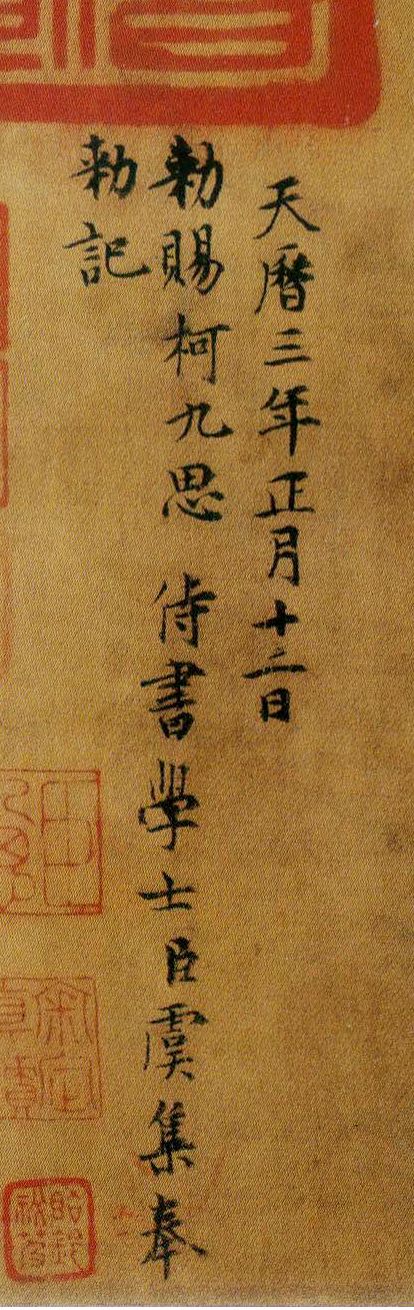 天曆三年正月十二日
勅賜柯九思 侍書學士臣虞集奉
勅記